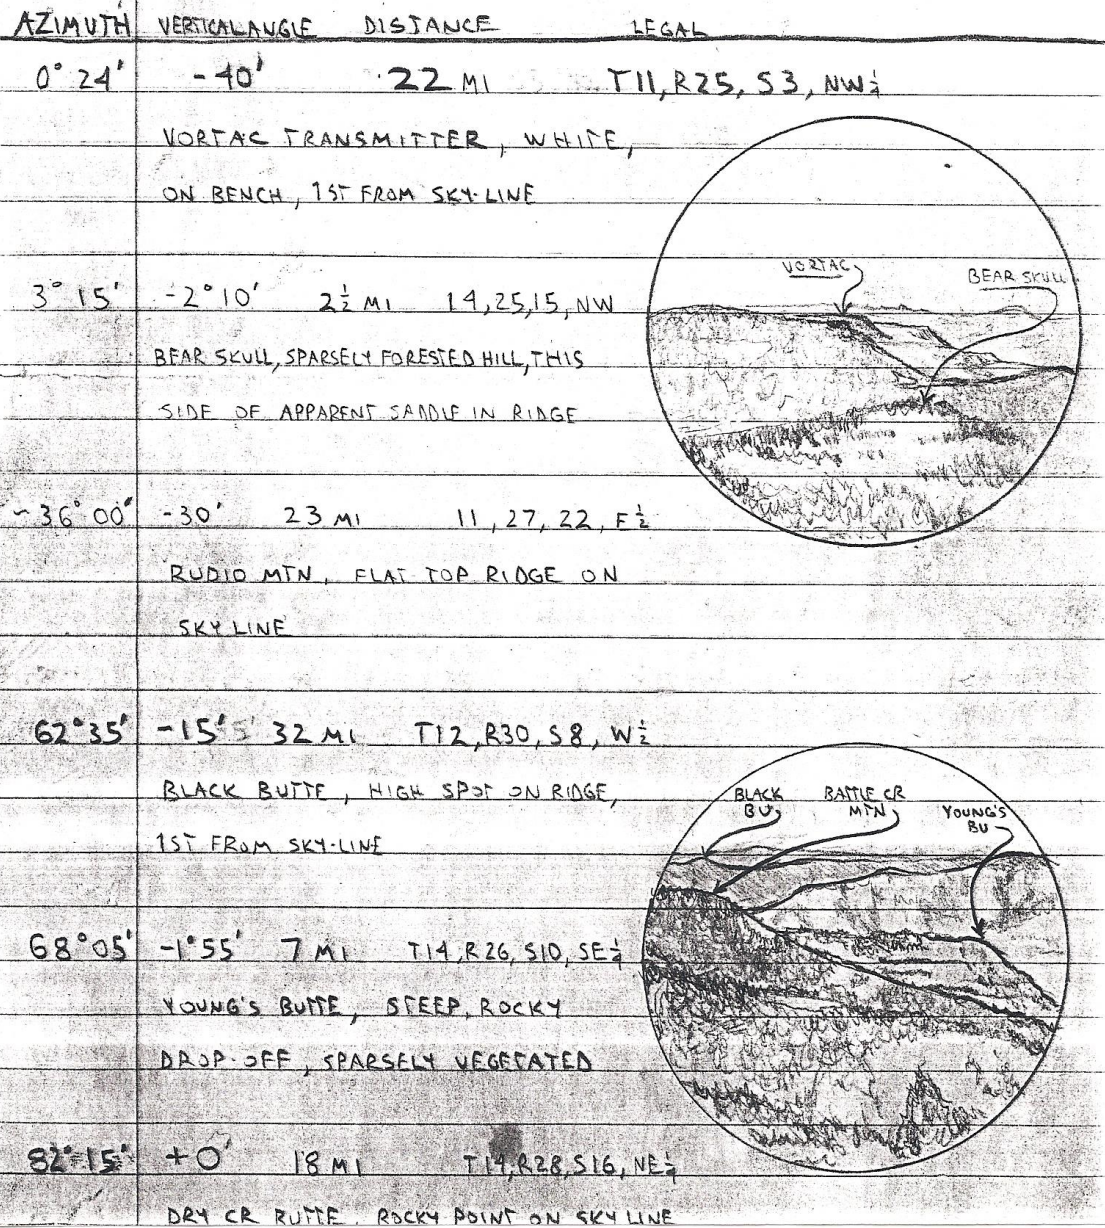 AZIMUTH VERTICAL ANGLE DISTANCE LEGAL
0° 24' -40' 22 MI T11, R25, S3, NW¼
VORTAC TRANSMITTER, WHITE,
ON BENCH, 1ST FROM SKY-LINE
VORTAC
BEAR SKULL
3° 15' -2° 10' 2½ MI 14, 25, 15, NW
BEAR SKULL, SPARSELY FORESTED HILL, THIS
SIDE OF APPARENT SADDLE IN RIDGE
~36° 00' -30' 23 MI 11, 27, 22, E½
RUDIO MTN, FLAT TOP RIDGE ON
SKY LINE
62° 35' -15' 32 MI T12, R30, S8, W½
BLACK BUTTE, HIGH SPOT ON RIDGE,
1ST FROM SKY-LINE
BLACK
BU
BATTLE CR
MTN
YOUNG'S
BU
68° 05' -1° 55' 7 MI T14, R26, S10, SE¼
YOUNG'S BUTTE, STEEP, ROCKY
DROP-OFF, SPARSELY VEGETATED
82° 15' +0' 18 MI T14, R28, S16, NE¼
DRY CR BUTTE, ROCKY POINT ON SKY LINE